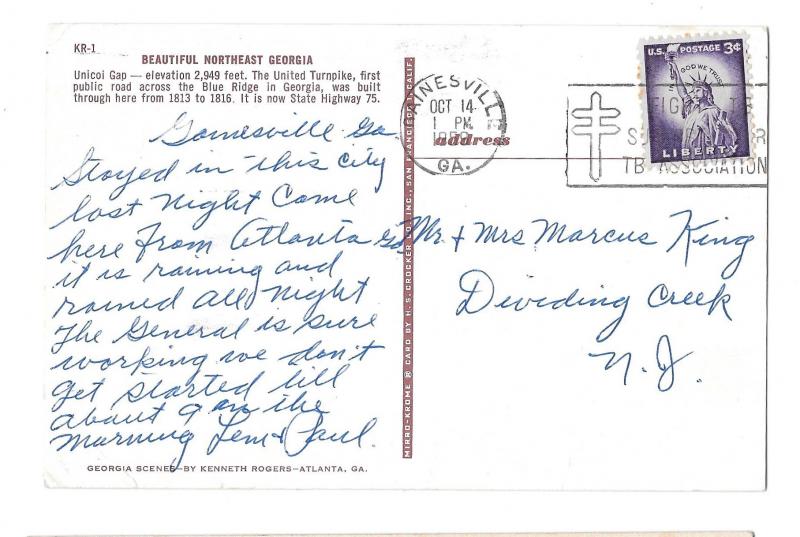 KR-1
BEAUTIFUL NORTHEAST GEORGIA
Unicoi Gap — elevation 2,949 feet. The United Turnpike, first
public road across the Blue Ridge in Georgia, was built
through here from 1813 to 1816. It is now State Highway 75.
Gainesville Ga.
Stayed in this city
last night Come
here from Atlanta Ga.
it is raining and
rained all night
The General is sure
working we don't
get started till
about 9 in the
morning Lem & Paul.
GEORGIA SCENES—BY KENNETH ROGERS—ATLANTA, GA.
MIRRO-KROME ® CARD BY H. S. CROCKER CO., INC., SAN FRANCISCO 1, CALIF.
AINESVILL
OCT 14
1 PM
GA.
address
U.S. POSTAGE 3¢
IN GOD WE TRUST
LIBERTY
TB ASSOCIATION
Mr. + Mrs Marcus King
Dividing Creek
N. J.